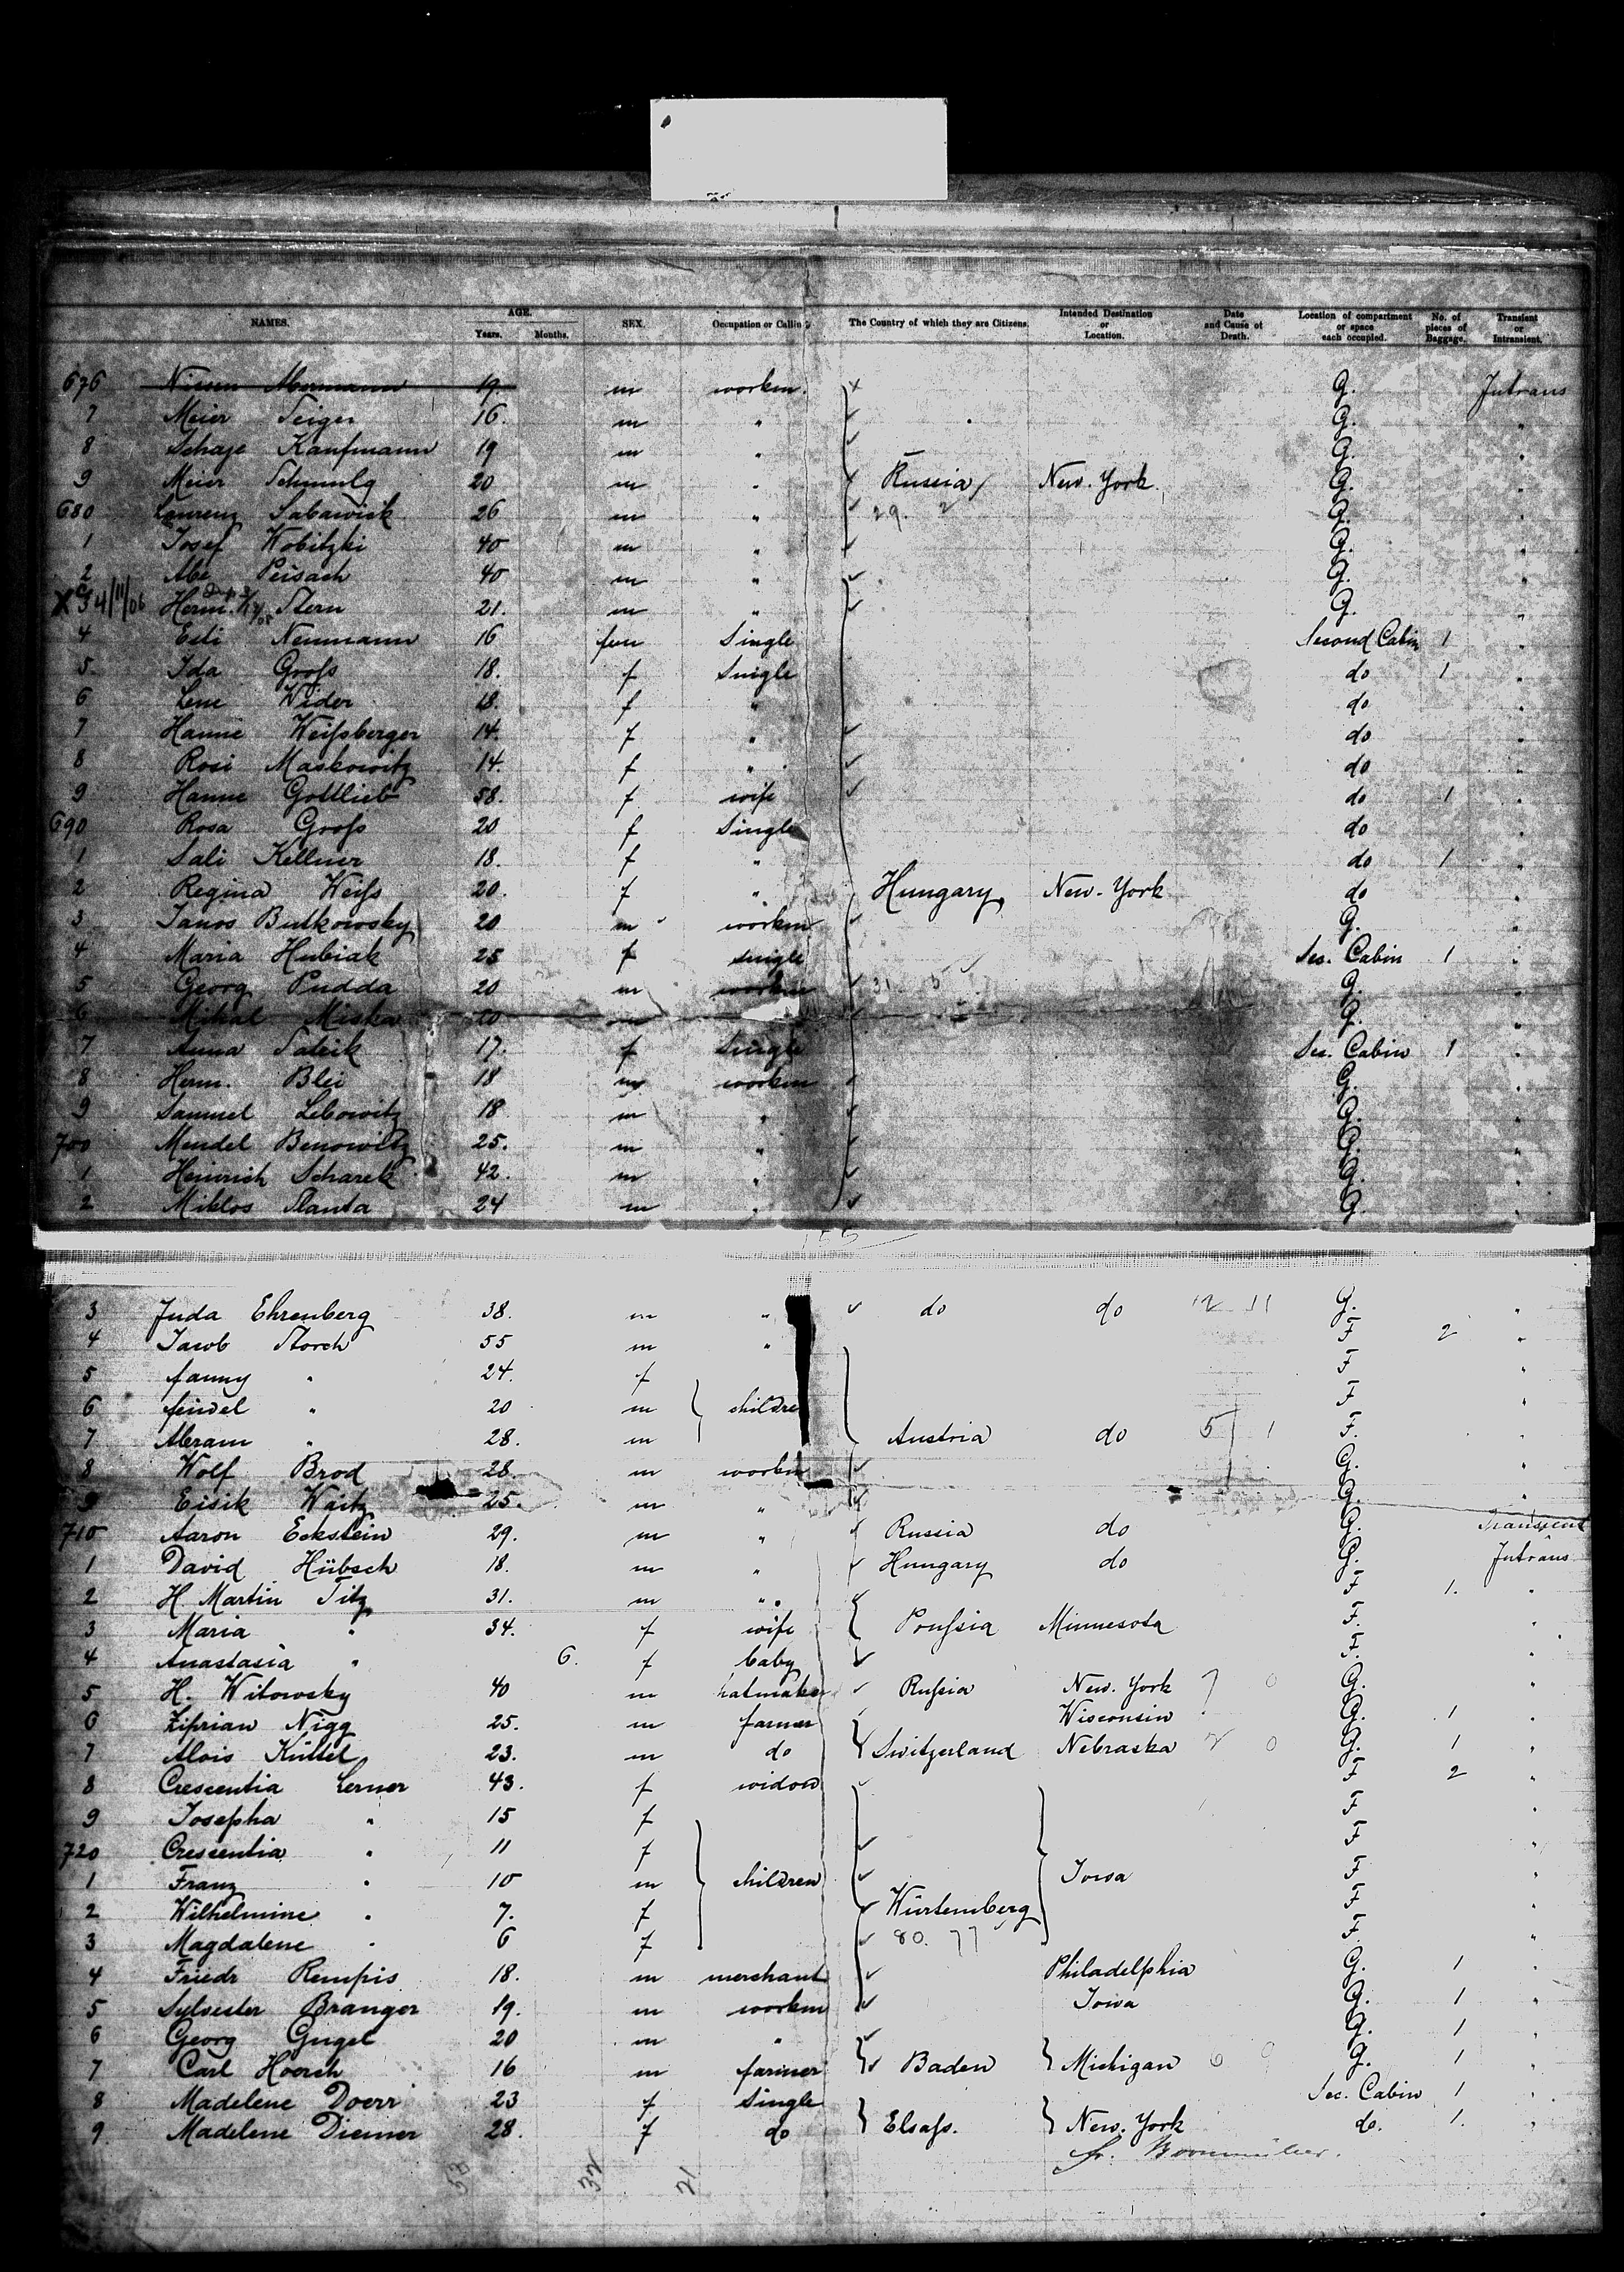 NAMES. AGE. Years. Months. SEX. Occupation or Calling The Country of which they are Citizens. Intended Destination or Location. Date and Cause of Death. Location of compartment or space each occupied. No. of pieces of Baggage. Transient or Intransient.
676 Nissen Abermann 19. m workm. G. Intrans
7 Meier Teiger 16. m " G. "
8 Schaje Kaufmann 19 m " G. "
9 Meier Schmulg 20 m " Russia New-York. G. "
680 Laurenz Sabawick 26 m " 29. 2 G. "
1 Josef Wobitzki 40 m " G. "
2 Abe Peisach 40 m " G. "
X 3 4/11/06 Herm. Stern 21. m " G. "
4 Esti Neumann 16 fem Single Second Cabin 1 "
5 Ida Groß 18. f Single do 1 "
6 Lene Wider 18. f " do "
7 Hanne Weißberger 14. f " do "
8 Rosi Maskowitz 14. f " do "
9 Hanne Gottlieb 58. f wife do 1 "
690 Rosa Groß 20 f Single do "
1 Sali Kellner 18. f " do 1 "
2 Regina Weiß 20. f " Hungary New-York do "
3 Janos Butkowsky 20 m workm G. "
4 Maria Hubiak 25 f single Sec. Cabin 1 "
5 Georg Pudda 20 m workm 31. 5 G. "
6 Mihal Miska 20 m G. "
7 Anna Satrik 17. f Single Sec. Cabin 1 "
8 Herm. Blei 18 m workm G. "
9 Samuel Lebowitz 18 m " G. "
700 Mendel Benowitz 25. m " G. "
1 Heinrich Scharek 42. m " G. "
2 Miklos Stanta 24 m " G. "
3 Juda Ehrenberg 38. m " do do 12 11 G. "
4 Jacob Storch 55 m " F 2 "
5 fanny " 24. f F "
6 feiwel " 20 m children F "
7 Abram " 28. m Austria do 5 1 F. "
8 Wolf Brod 28. m workm G. "
9 Eisik Waitz 25. m " G. "
710 Aaron Eckstein 29. m " Russia do G. Transient
1 David Hübsch 18. m " Hungary do G. Intrans
2 H. Martin Titz 31. m " F 1. "
3 Maria " 34. f wife Preußia Minnesota F. "
4 Anastasia " 6. f baby F. "
5 H. Witowsky 40 m hatmaker Rußia New-York 7 0 G. "
6 Ziprian Nigg 25. m farmer Wisconsin G. 1 "
7 Alois Küttel 23. m do Switzerland Nebraska 2 0 G. 1 "
8 Crescentia Lerner 43. f widow F 2 "
9 Josepha " 15 f F "
720 Crescentia " 11 f F "
1 Franz " 10 m children Iowa F "
2 Wilhelmine " 7. f Würtemberg F "
3 Magdalene " 6 f 80. 77 F. "
4 Friedr Rempis 18. m merchant Philadelphia G. 1 "
5 Sylvester Branger 19. m workm Iowa G. 1 "
6 Georg Gugel 20 m " G. 1 "
7 Carl Hoorch 16 m farmer Baden Michigan G. 1 "
8 Madelene Doerr 23 f Single Sec. Cabin 1 "
9. Madelene Diemer 28. f do Elsaß. New-York do. 1. "
53 32 21